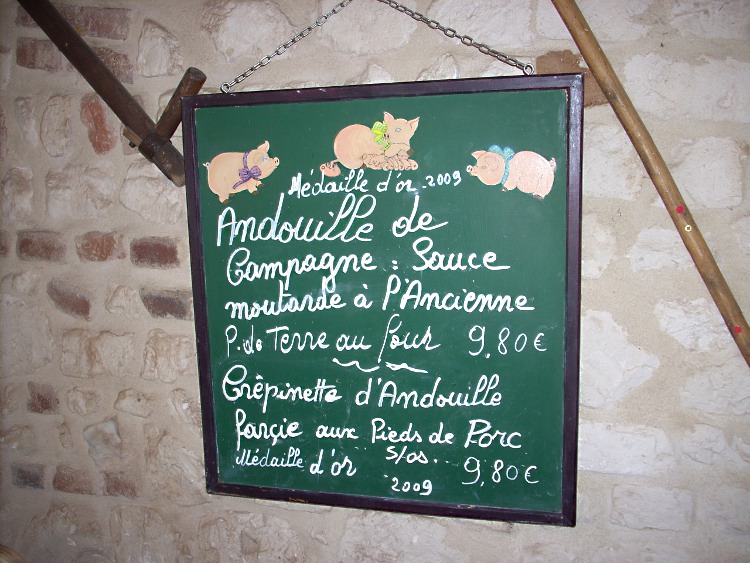 Médaille d'or 2009
Andouille de
Campagne : Sauce
moutarde à l'Ancienne
P. de Terre au four 9,80€
Crêpinette d'Andouille
farçie aux Pieds de Porc
s/os.
Médaille d'or 2009 9,80€